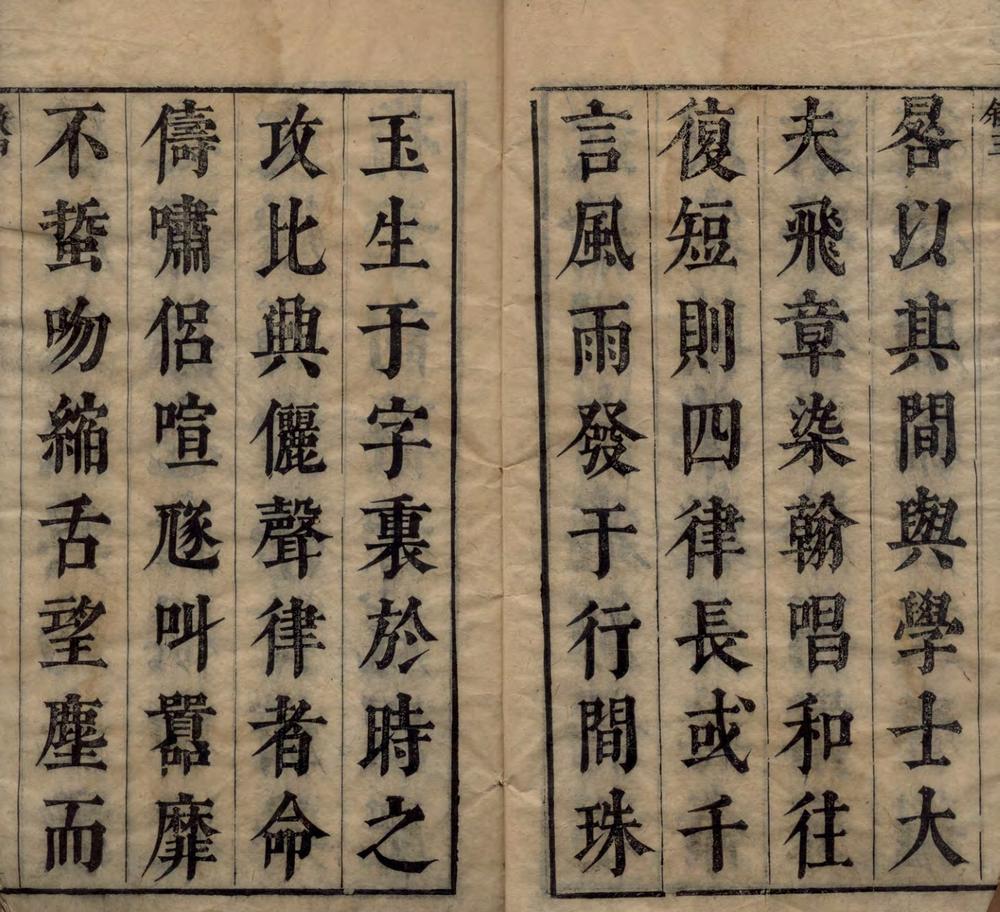 畧以其間與學士大
夫飛章染翰唱和往
復短則四律長或千
言風雨發于行間珠
玉生于字裏於時之
攻比興儷聲律者命
儔嘯侶喧豗叫囂靡
不蜇吻縮舌望塵而